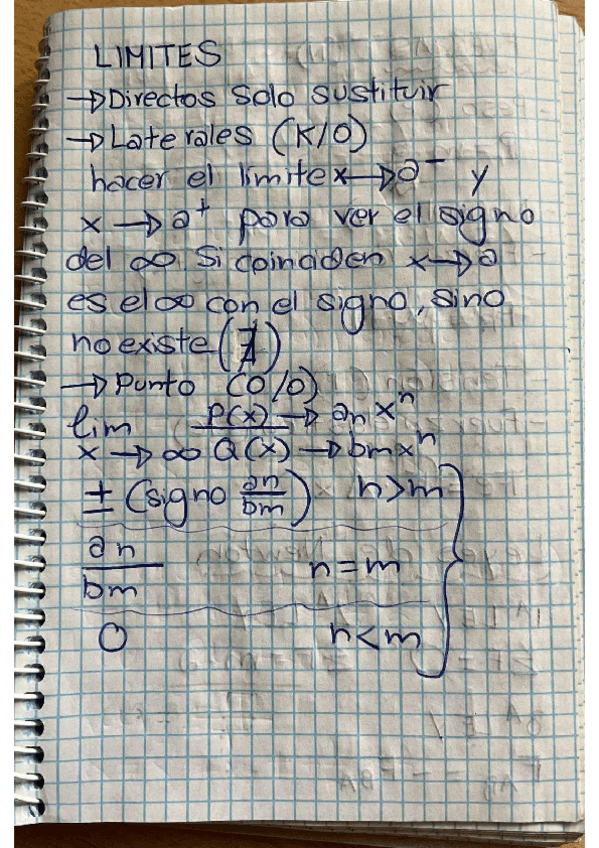 LIMITES
→ Directos Solo sustituir
→ Laterales (K/0)
hacer el limite x→a⁻ y
x→a⁺ para ver el signo
del ∞. Si coinciden x→a
es el ∞ con el signo, sino
no existe (∄)
→ Punto (0/0)
lim P(x) → aₙxⁿ
x→∞ Q(x) → bmxⁿ
± (signo an/bm) n>m
an/bm n=m
0 n<m